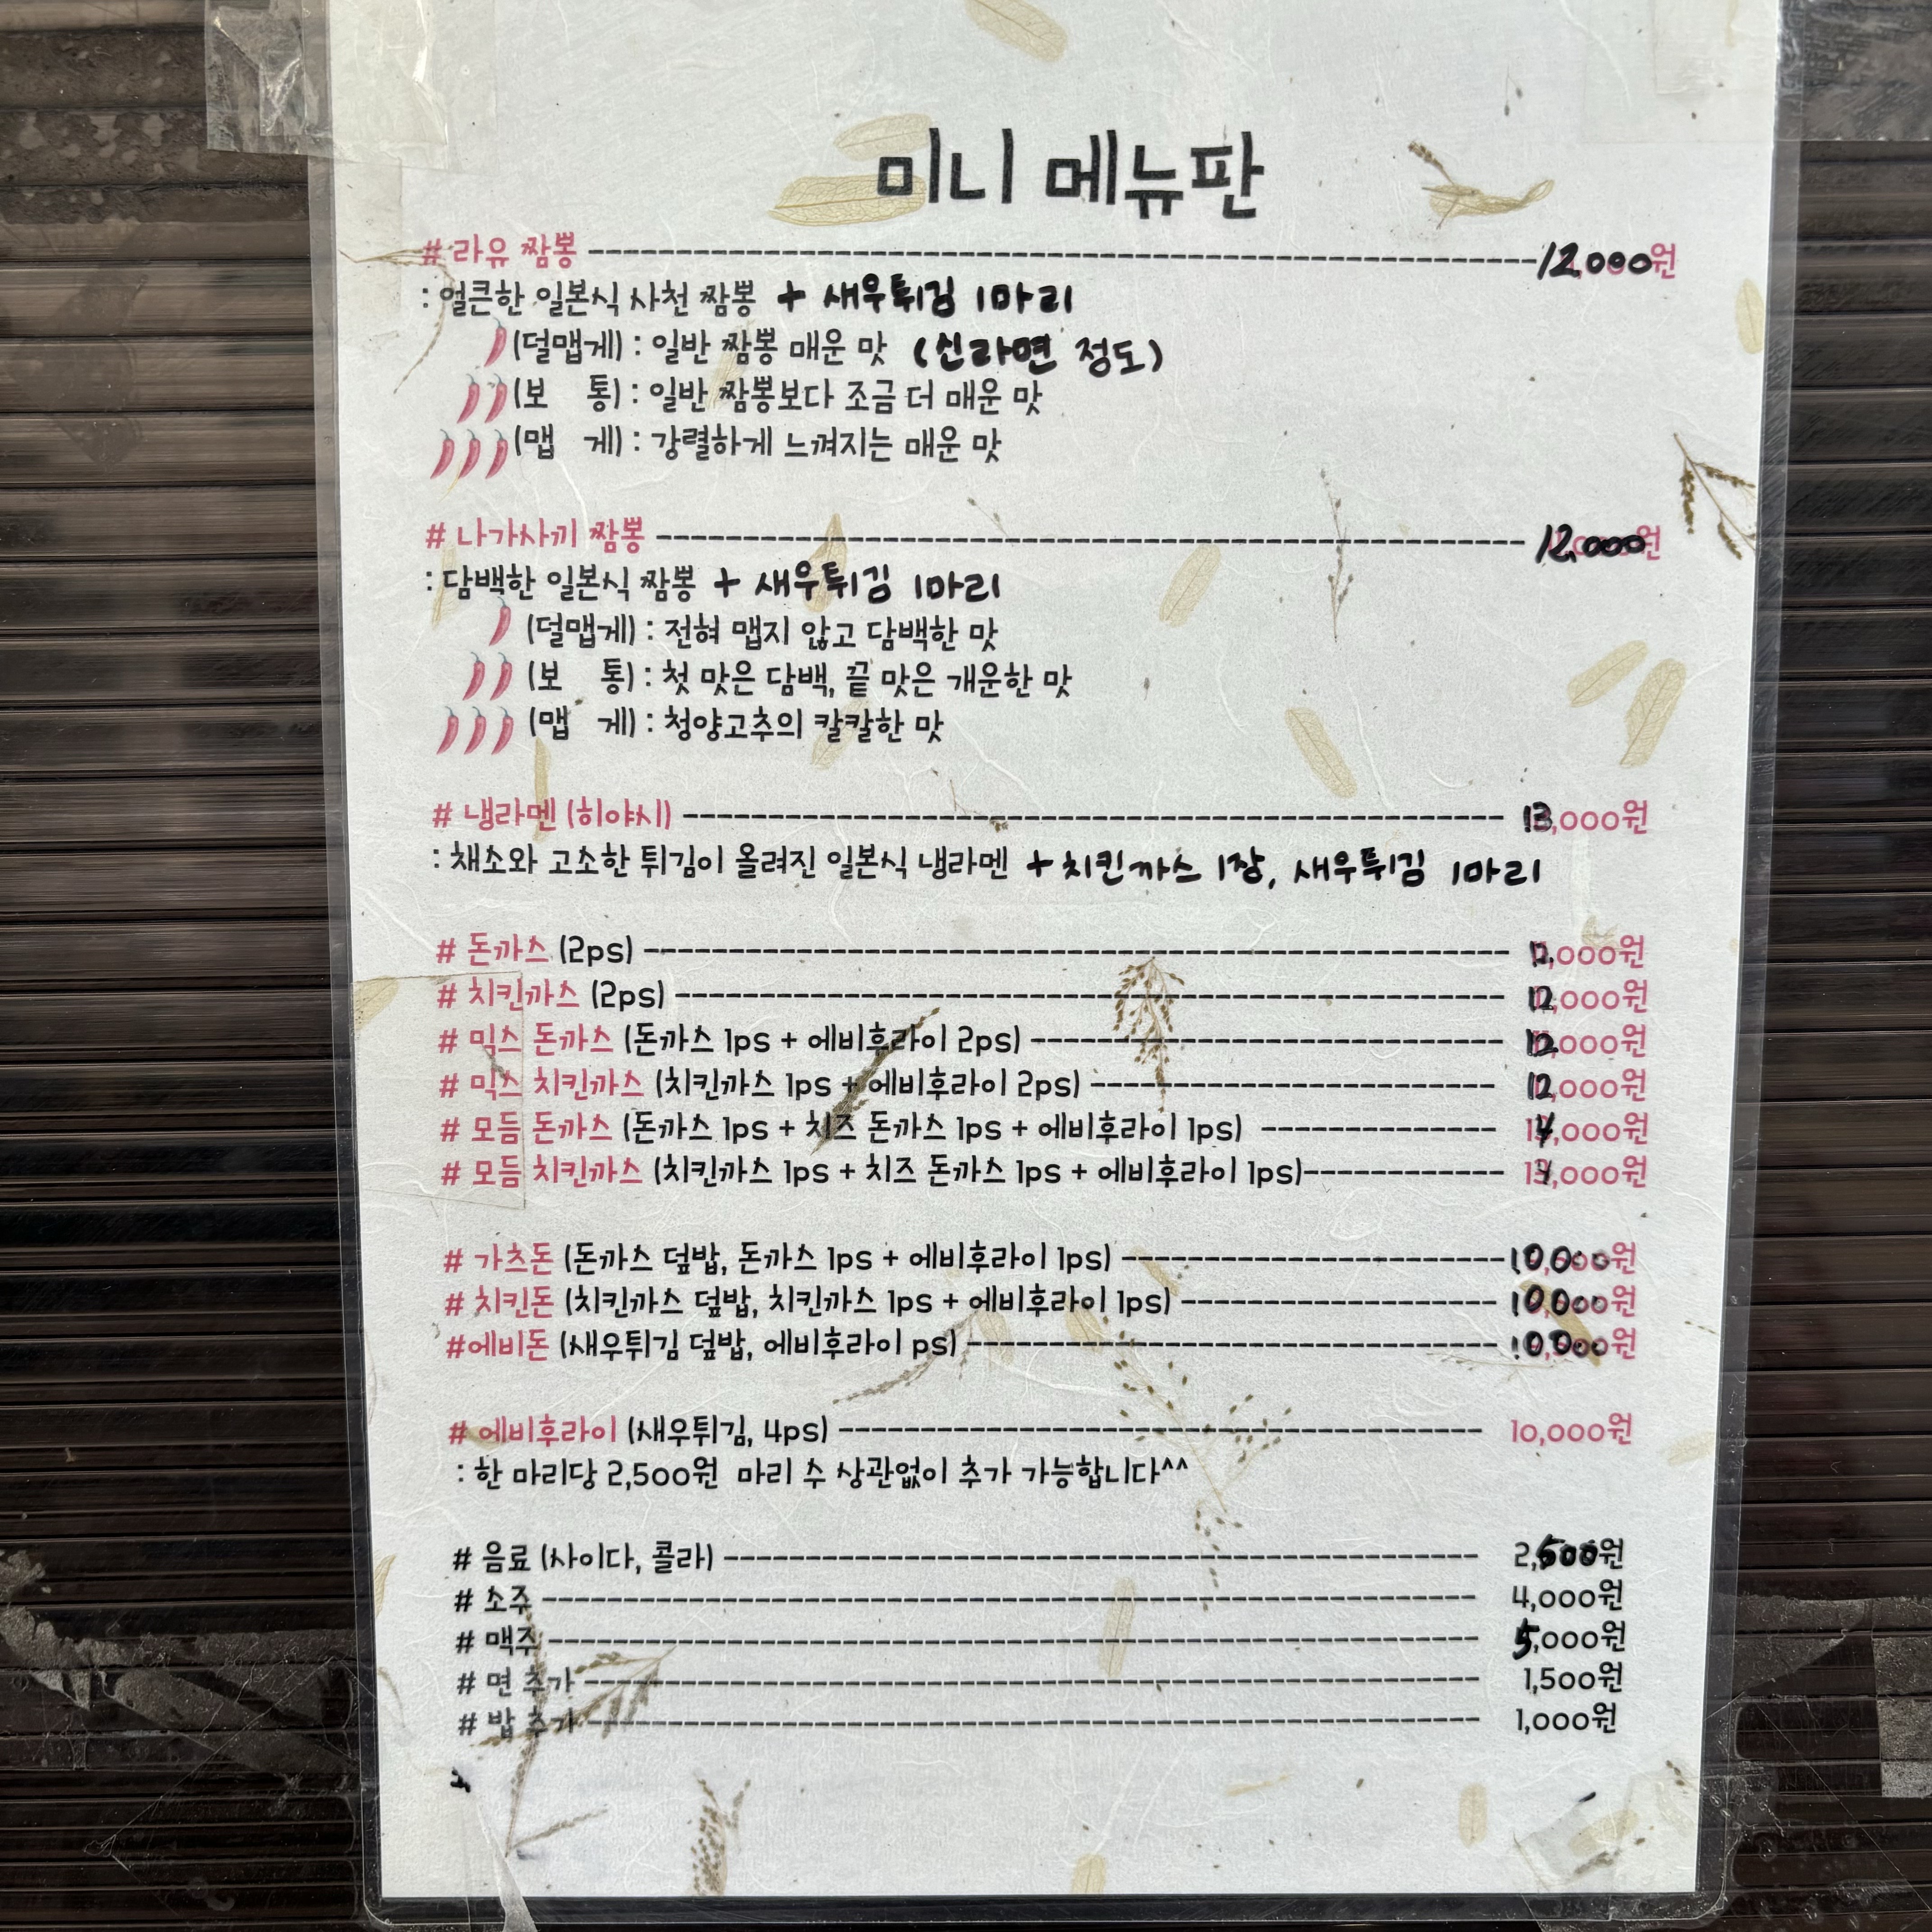 미니 메뉴판
# 라유 짬뽕 12,000원
: 얼큰한 일본식 사천 짬뽕 + 새우튀김 1마리
(덜맵게) : 일반 짬뽕 매운 맛 (신라면 정도)
(보 통) : 일반 짬뽕보다 조금 더 매운 맛
(맵 게) : 강렬하게 느껴지는 매운 맛
# 나가사끼 짬뽕 12,000원
: 담백한 일본식 짬뽕 + 새우튀김 1마리
(덜맵게) : 전혀 맵지 않고 담백한 맛
(보 통) : 첫 맛은 담백, 끝 맛은 개운한 맛
(맵 게) : 청양고추의 칼칼한 맛
# 냉라멘 (히야시) 13,000원
: 채소와 고소한 튀김이 올려진 일본식 냉라멘 + 치킨까스 1장, 새우튀김 1마리
# 돈까스 (2ps)
# 치킨까스 (2ps) 12,000원
# 믹스 돈까스 (돈까스 1ps + 에비후라이 2ps) 12,000원
# 믹스 치킨까스 (치킨까스 1ps + 에비후라이 2ps) 12,000원
# 모듬 돈까스 (돈까스 1ps + 치즈 돈까스 1ps + 에비후라이 1ps) 14,000원
# 모듬 치킨까스 (치킨까스 1ps + 치즈 돈까스 1ps + 에비후라이 1ps) 14,000원
# 가츠돈 (돈까스 덮밥, 돈까스 1ps + 에비후라이 1ps) 10,000원
# 치킨돈 (치킨까스 덮밥, 치킨까스 1ps + 에비후라이 1ps) 10,000원
#에비돈 (새우튀김 덮밥, 에비후라이 ps) 10,000원
# 에비후라이 (새우튀김, 4ps) 10,000원
: 한 마리당 2,500원 마리 수 상관없이 추가 가능합니다^^
# 음료 (사이다, 콜라) 2,500원
# 소주 4,000원
# 맥주 5,000원
# 면 추가 1,500원
# 밥 추가 1,000원